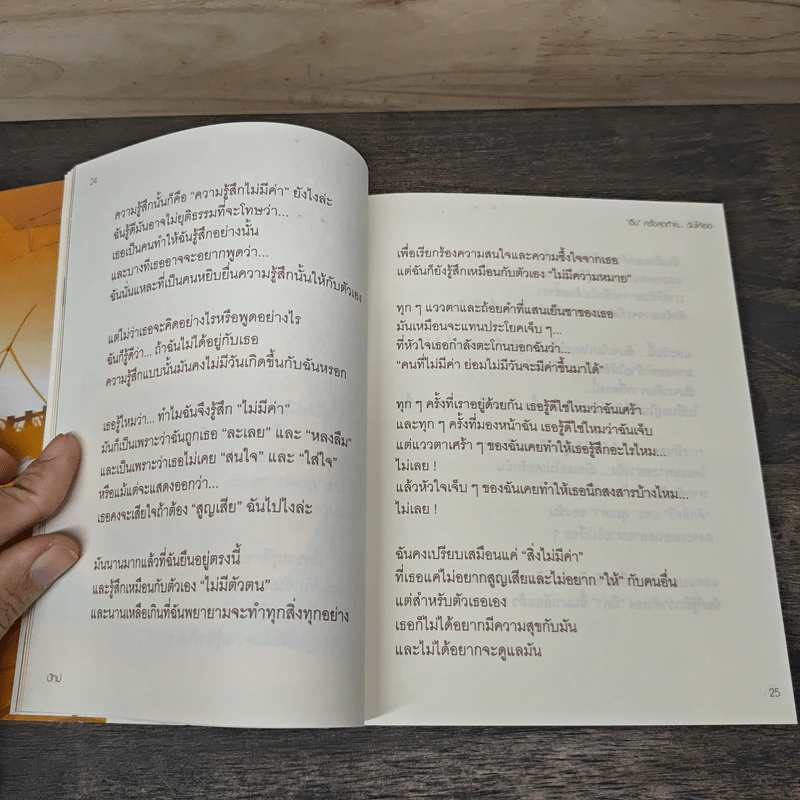 24
ความรู้สึกนั้นก็คือ “ความรู้สึกไม่มีค่า” ยังไงล่ะ
ฉันรู้ดีมันอาจไม่ยุติธรรมที่จะโทษว่า...
เธอเป็นคนทำให้ฉันรู้สึกอย่างนั้น
และบางทีเธออาจจะอยากพูดว่า...
ฉันนั่นแหละที่เป็นคนหยิบยื่นความรู้สึกนั้นให้กับตัวเอง
แต่ไม่ว่าเธอจะคิดอย่างไรหรือพูดอย่างไร
ฉันก็รู้ดีว่า... ถ้าฉันไม่ได้อยู่กับเธอ
ความรู้สึกแบบนั้นมันคงไม่มีวันเกิดขึ้นกับฉันหรอก
เธอรู้ไหมว่า... ทำไมฉันจึงรู้สึก “ไม่มีค่า”
มันก็เป็นเพราะว่าฉันถูกเธอ “ละเลย” และ “หลงลืม”
และเป็นเพราะว่าเธอไม่เคย “สนใจ” และ “ใส่ใจ”
หรือแม้แต่จะแสดงออกว่า...
เธอคงจะเสียใจถ้าต้อง “สูญเสีย” ฉันไปไงล่ะ
มันนานมากแล้วที่ฉันยืนอยู่ตรงนี้
และรู้สึกเหมือนกับตัวเอง “ไม่มีตัวตน”
และนานเหลือเกินที่ฉันพยายามจะทำทุกสิ่งทุกอย่าง
ปีใหม่
ครั้งสุดท้าย... ฉันให้เธอ
เพื่อเรียกร้องความสนใจและความซึ้งใจจากเธอ
แต่ฉันก็ยังรู้สึกเหมือนกับตัวเอง “ไม่มีความหมาย”
ทุก ๆ แววตาและถ้อยคำที่แสนเย็นชาของเธอ
มันเหมือนจะแทนประโยคเจ็บ ๆ...
ที่หัวใจเธอกำลังตะโกนบอกฉันว่า...
“คนที่ไม่มีค่า ย่อมไม่มีวันจะมีค่าขึ้นมาได้”
ทุก ๆ ครั้งที่เราอยู่ด้วยกัน เธอรู้ดีใช่ไหมว่าฉันเศร้า
และทุก ๆ ครั้งที่มองหน้าฉัน เธอรู้ดีใช่ไหมว่าฉันเจ็บ
แต่แววตาเศร้า ๆ ของฉันเคยทำให้เธอรู้สึกอะไรไหม...
ไม่เลย !
แล้วหัวใจเจ็บ ๆ ของฉันเคยทำให้เธอนึกสงสารบ้างไหม...
ไม่เลย !
ฉันคงเปรียบเสมือนแค่ “สิ่งไม่มีค่า”
ที่เธอแค่ไม่อยากสูญเสียและไม่อยาก “ให้” กับคนอื่น
แต่สำหรับตัวเธอเอง
เธอก็ไม่ได้อยากมีความสุขกับมัน
และไม่ได้อยากจะดูแลมัน
25